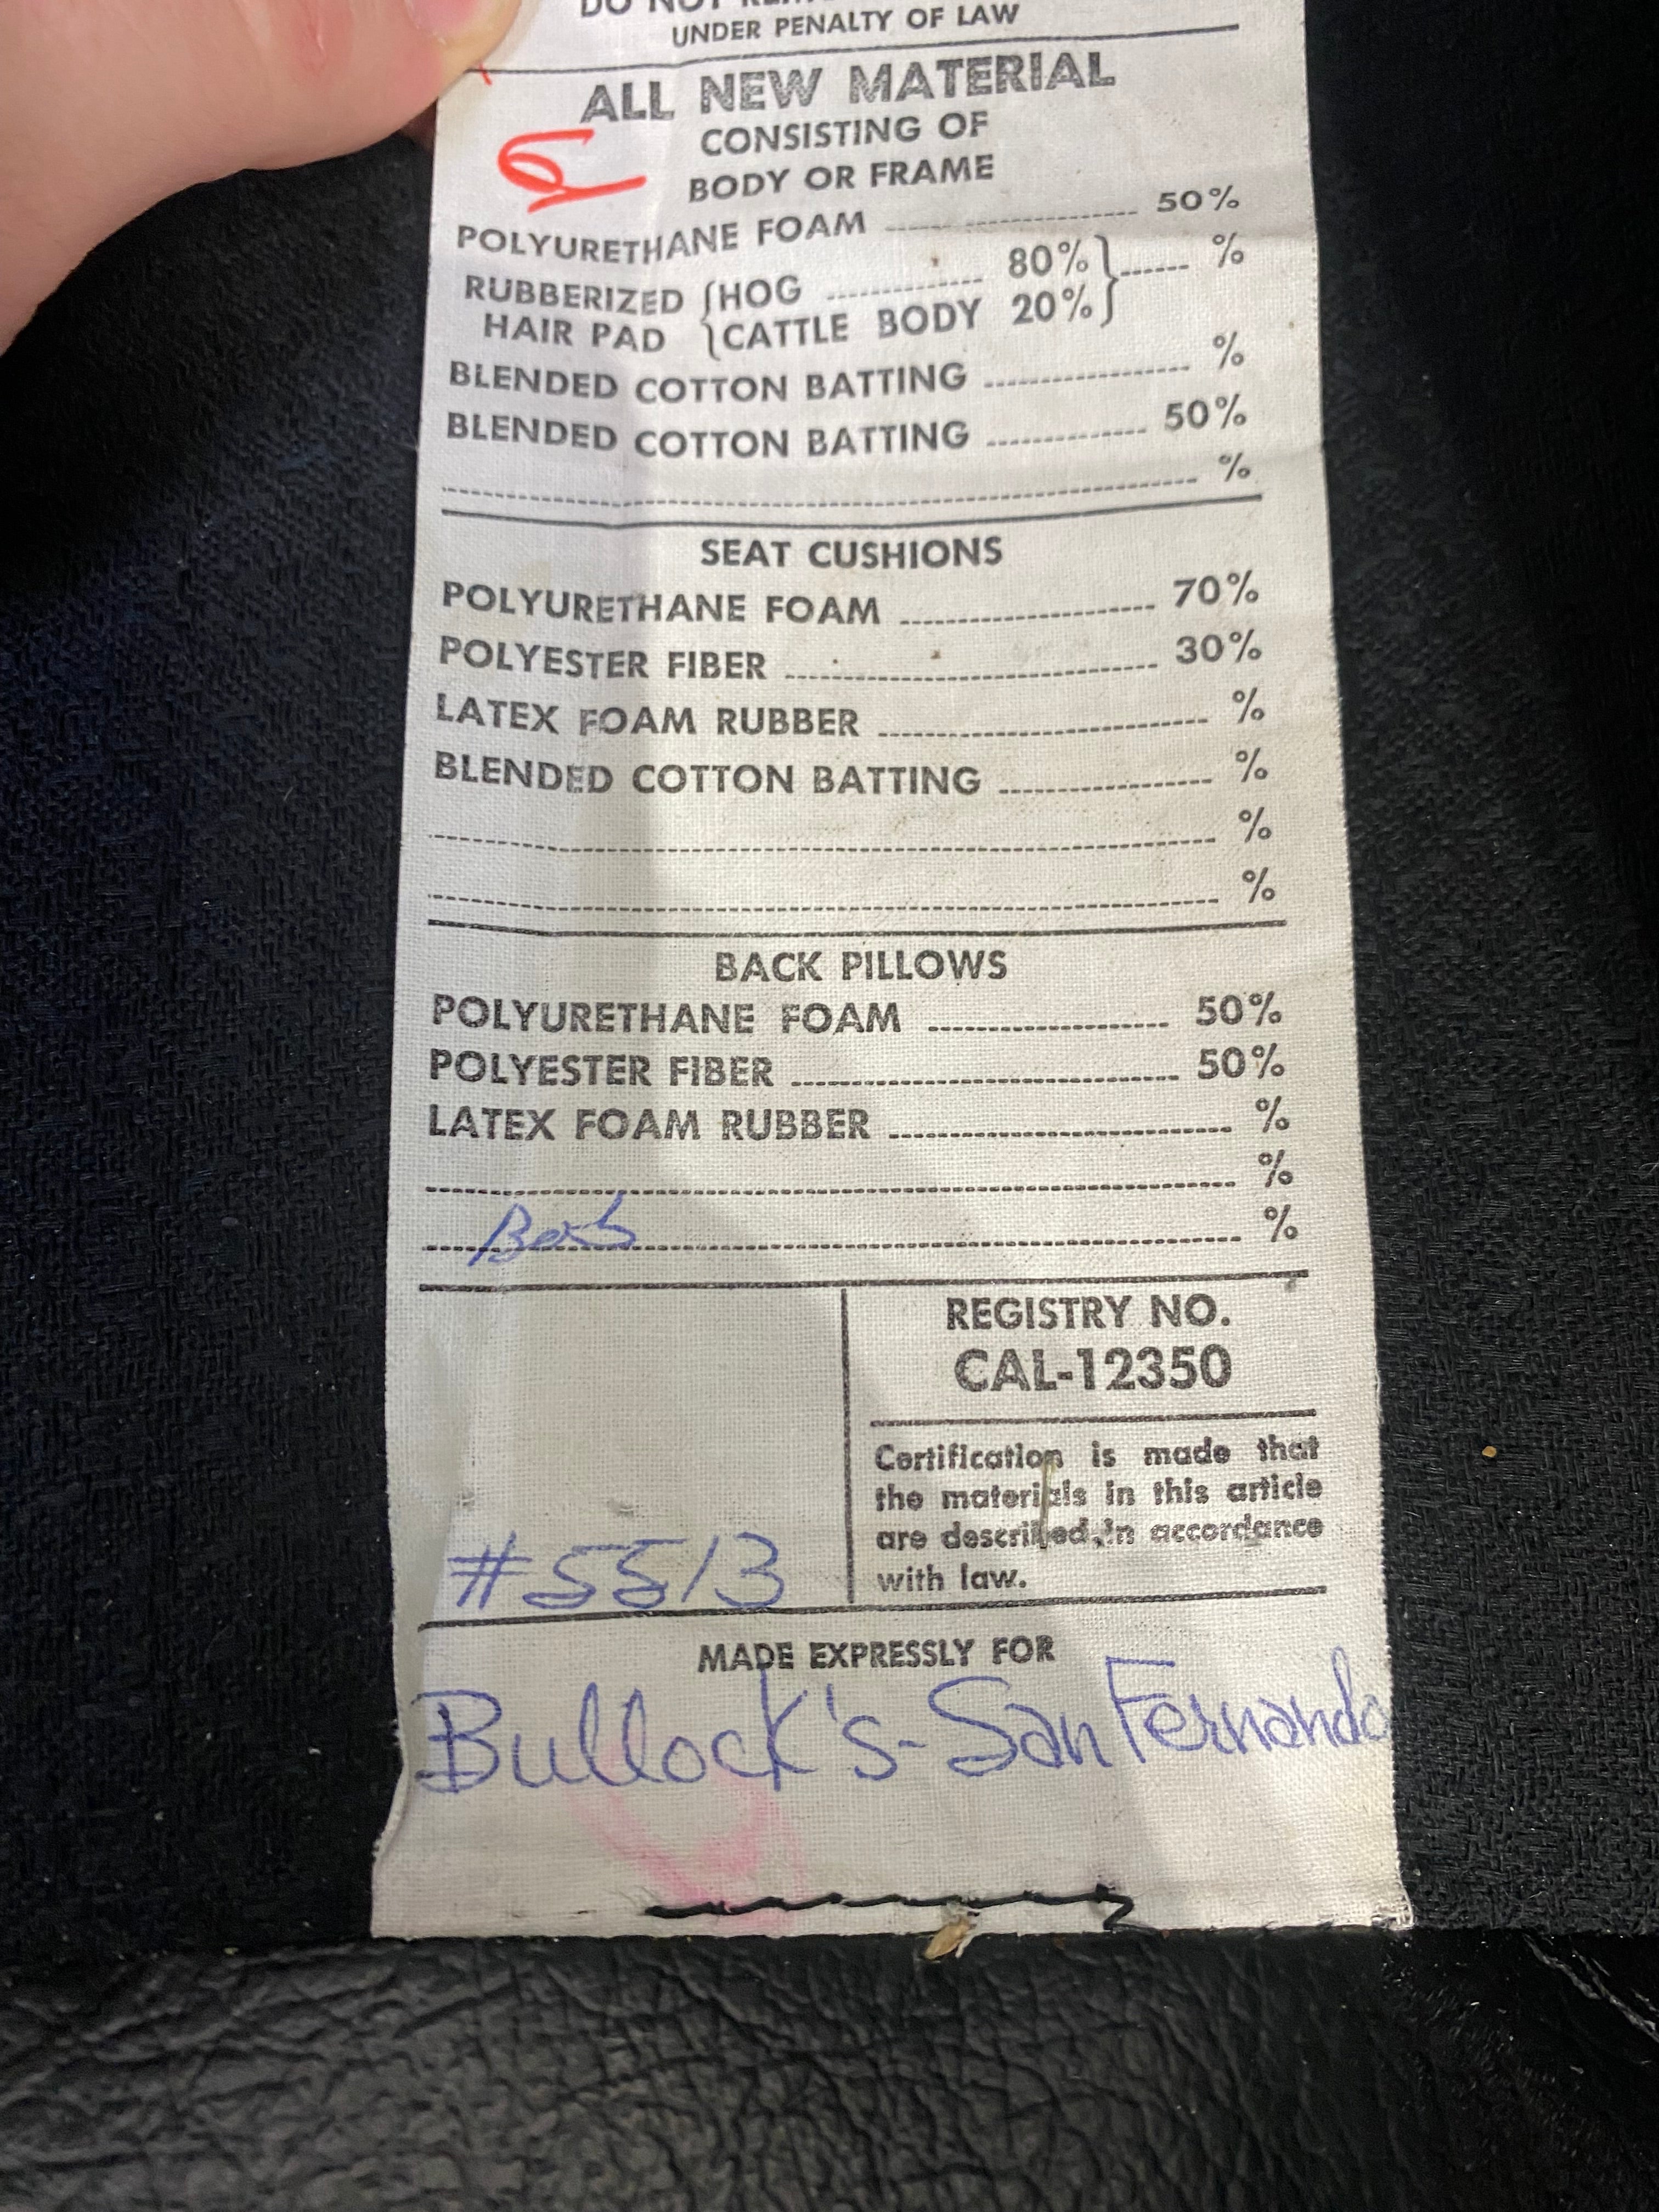 UNDER PENALTY OF LAW
ALL NEW MATERIAL
CONSISTING OF
BODY OR FRAME
POLYURETHANE FOAM 50%
RUBBERIZED {HOG 80%} %
HAIR PAD {CATTLE BODY 20%}
BLENDED COTTON BATTING %
BLENDED COTTON BATTING 50%
%
SEAT CUSHIONS
POLYURETHANE FOAM 70%
POLYESTER FIBER 30%
LATEX FOAM RUBBER %
BLENDED COTTON BATTING %
%
%
BACK PILLOWS
POLYURETHANE FOAM 50%
POLYESTER FIBER 50%
LATEX FOAM RUBBER %
%
%
REGISTRY NO.
CAL-12350
Certification is made that
the materials in this article
are described in accordance
with law.
#5513
MADE EXPRESSLY FOR
Bullock's-San Fernando